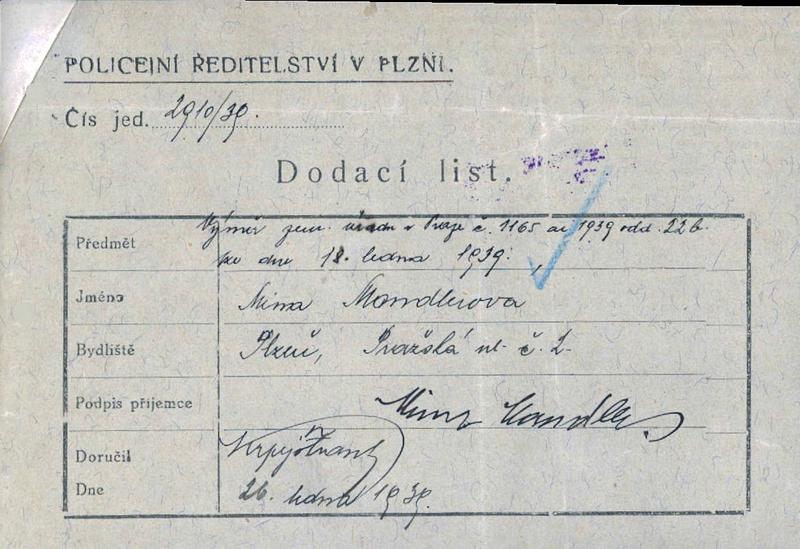 POLICEJNÍ ŘEDITELSTVÍ V PLZNI.
Čís jed. 2910/39.
Dodací list.
Předmět Výměr zem. úřadu v Praze č. 1165 ai 1939 odd. 22 b.
ze dne 18. ledna 1939.
Jméno Mina Mandlerova
Bydliště Plzeň, Pražská ul. č. 2.
Podpis příjemce Mina Mandler
Doručil
Dne 26. ledna 1939.